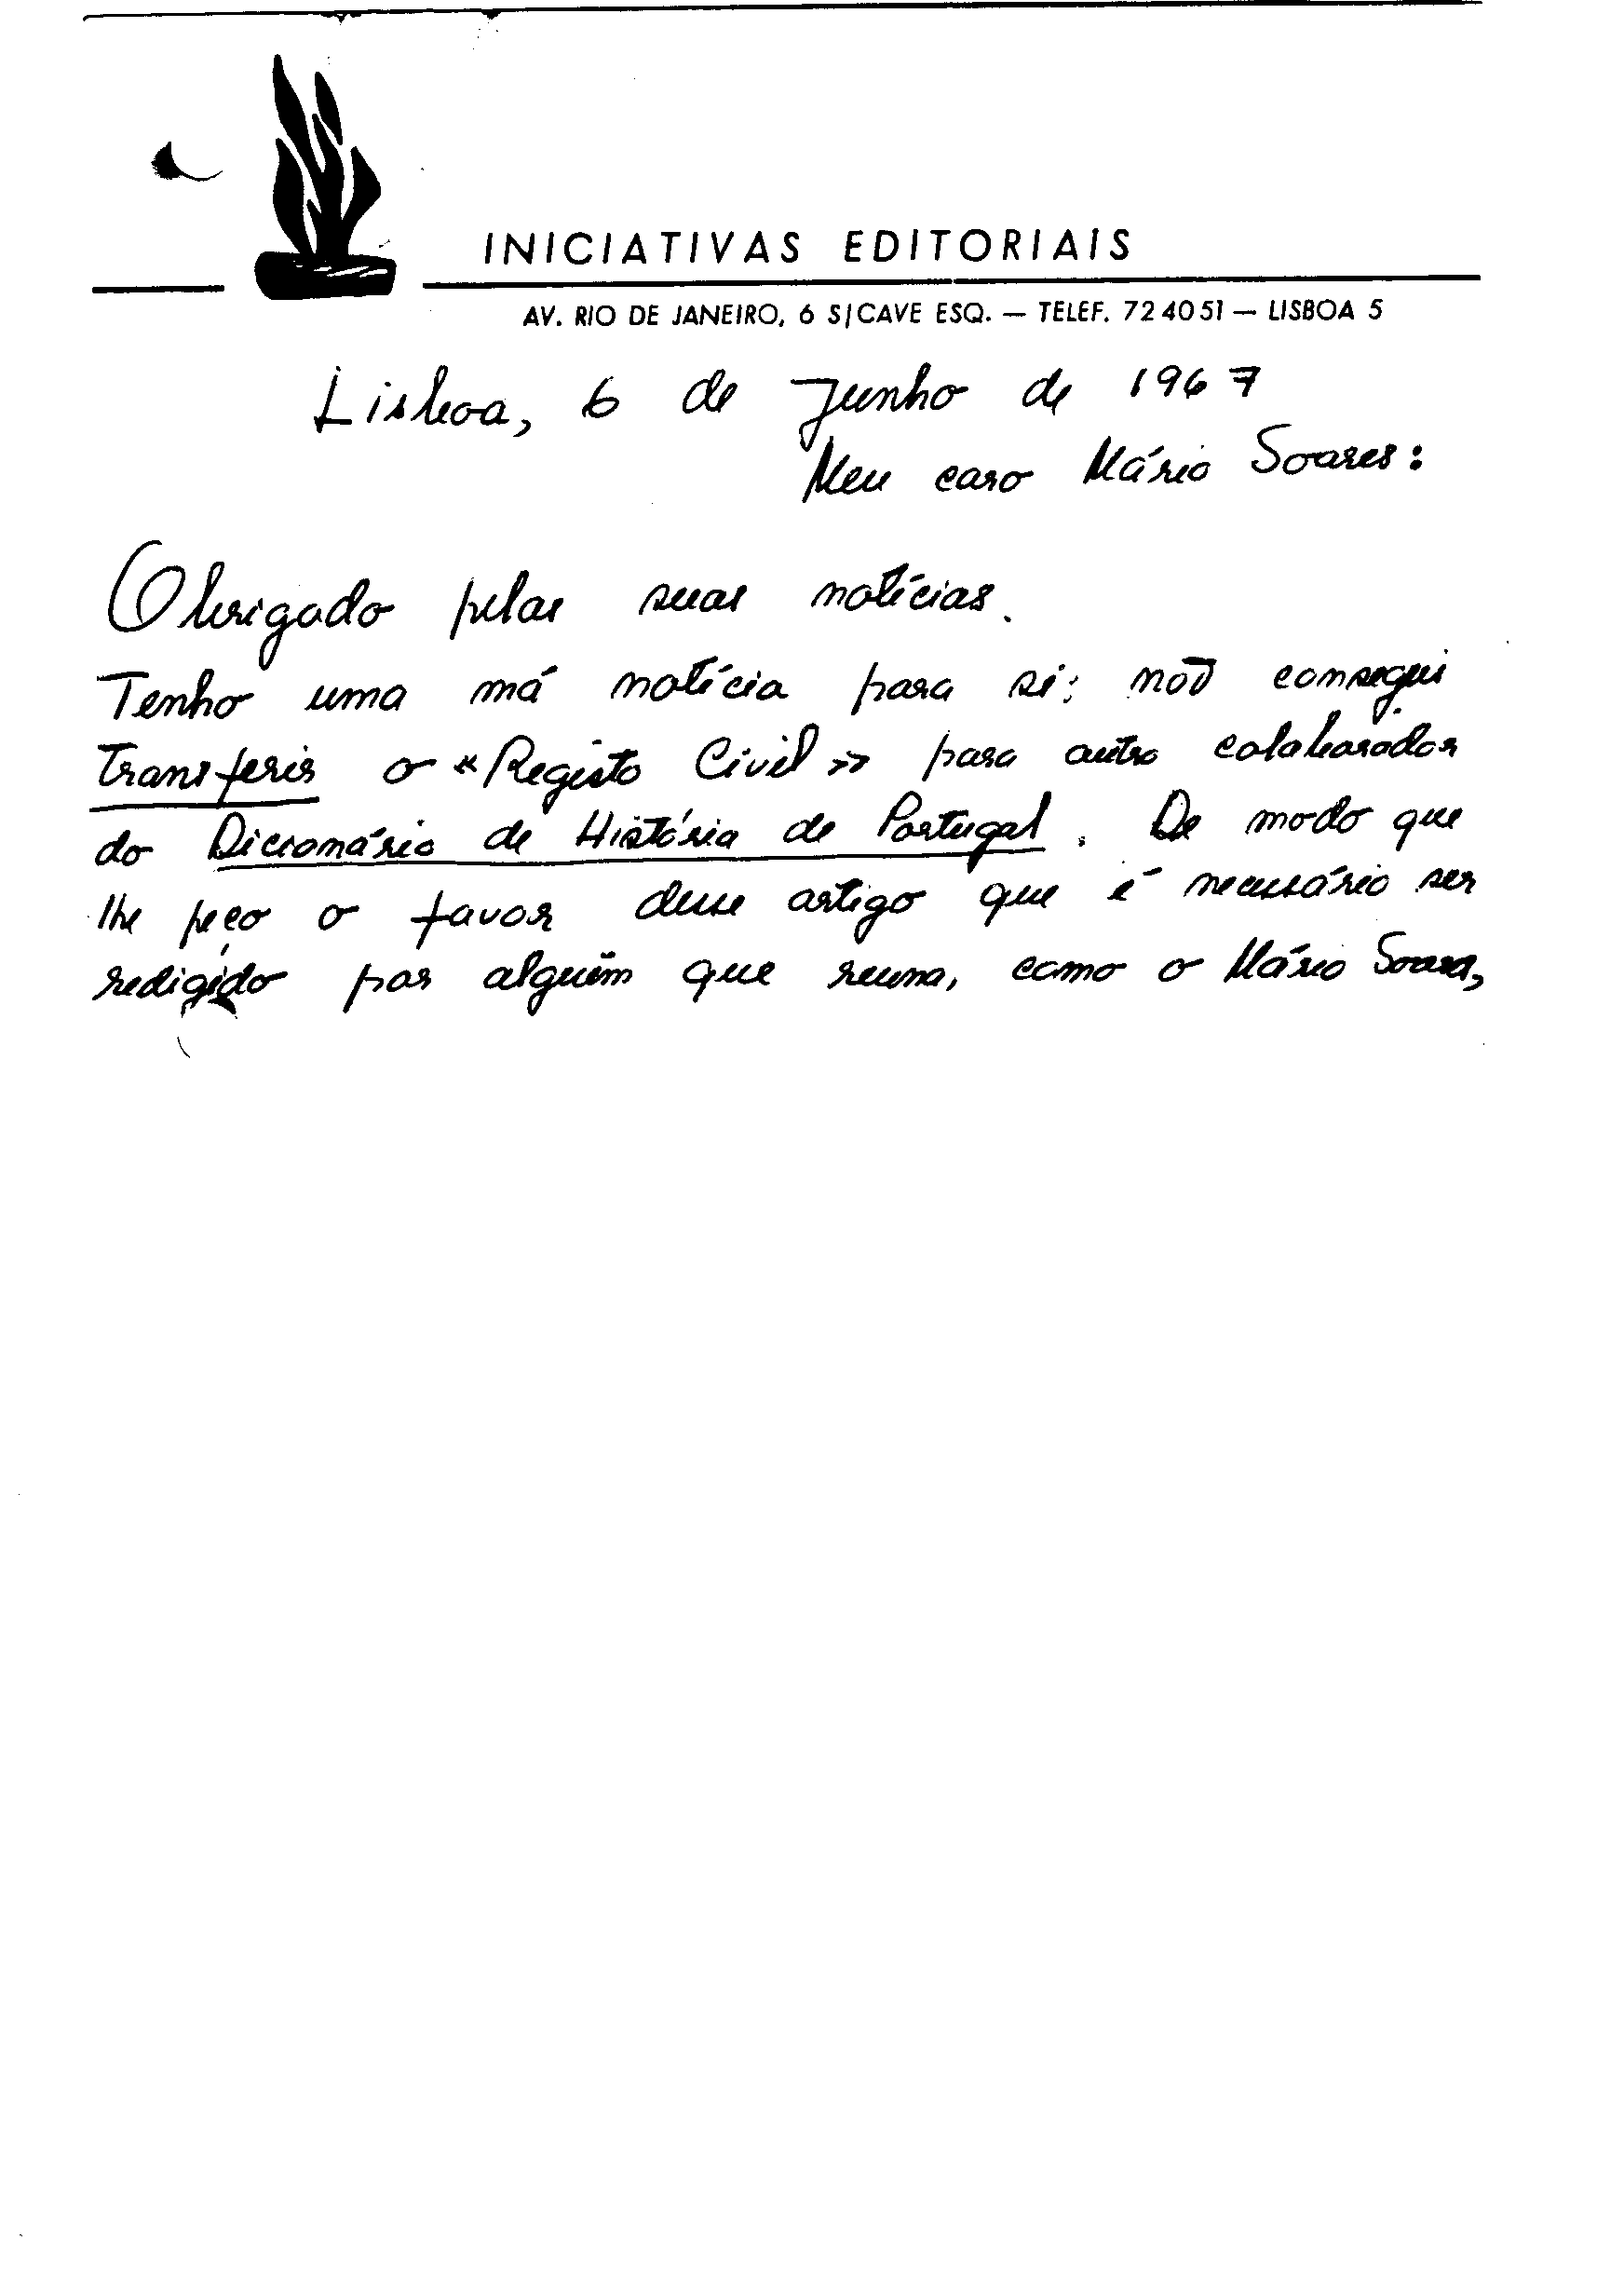 INICIATIVAS EDITORIAIS
AV. RIO DE JANEIRO, 6 S/CAVE ESQ. — TELEF. 724051 — LISBOA 5
Lisboa, 6 de Junho de 1967
Meu caro Mário Soares:
Obrigado pelas suas notícias.
Tenho uma má notícia para si: não consegui
transferir o «Registo Civil» para outro colaborador
do Diccionário de História de Portugal. De modo que
lhe peço o favor desse artigo que é necessário ser
redigido por alguém que reuna, como o Mário Soares,